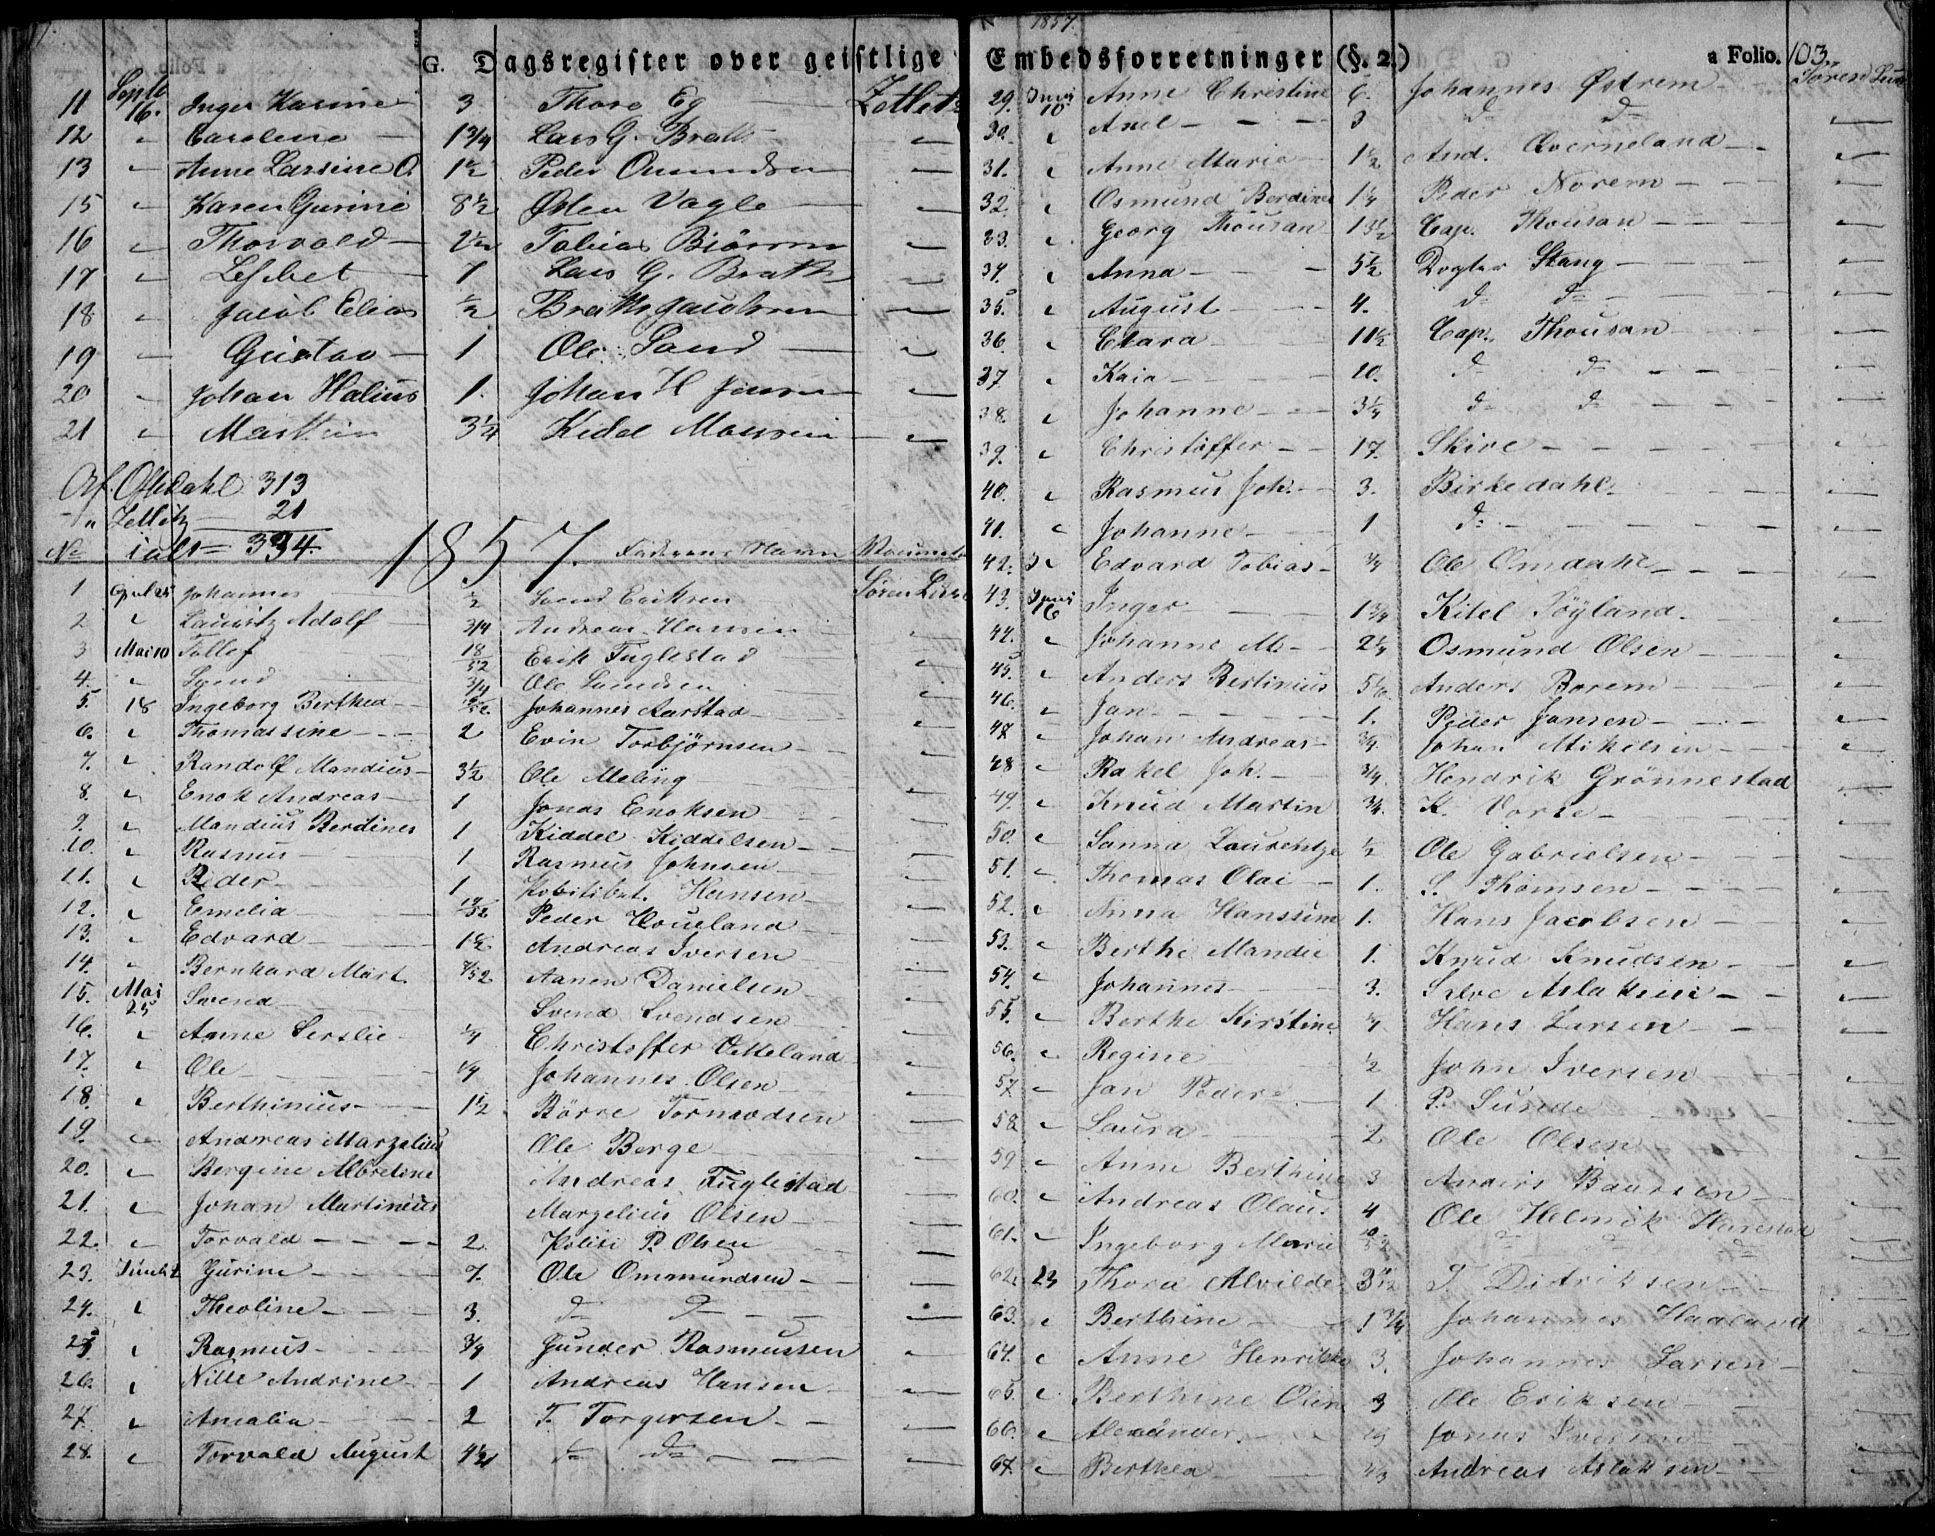 G. Dagsregister over geistlige
11 Septb 16. Inger Karine 3 Thore Eg Zetlitz
12 " Caroline 1 3/4 Lars G. Brath "
13 " Anne Larsine O. 1 1/2 Peder Omundsen "
15 " Karen Gurine 8 1/2 Østen Vagle "
16 " Thorvald 2 1/2 Tobias Biørn "
17 " Lisbet 1 Lars G. Brath "
18 " Jacob Elias 1/2 Brath Jacobsen "
19 " Gustav 1 Ole Sand "
20 " Johan Halius 1. Johan H "
21 " Marthin 3 1/4 Kidel "
Af Oftedahl 313
" Zetlitz 21
ialt = 334.
No 1857. Faderens Navn
1 April 25 Johannes 1/2 Svend Eriksen Søren
2 " Lauritz Adolf 3/4 Andreas Hansen
3 Mai 10 Tollef 18/52 Erik Fuglestad "
4. " Svend 3/4 Ole "
5. 18 Ingeborg Berthea Johannes Aarstad "
6. " Thomassine 2 Evin Torbjørnsen "
7. " Randolf Mandius 3 1/2 Ole Meling "
8. " Enok Andreas 1 Jonas Enoksen "
9. " Mandius Berdines 1 Kiddel Kiddelsen "
10. " Rasmus 1 Rasmus Johnsen "
11. " Peder 1 Hansen "
12. " Emelia Peder Houeland "
13. " Edvard 1 1/2 Andreas Iversen "
14. " Bernhard Mart. 4/52 Aanen Danielsen "
15. Mai 25 Svend Svend Svendsen "
16. " Anne Serslie 1/4 Christoffer Vetteland "
17. " Ole 1/4 Johannes Olsen "
18. " Berthinius 1 1/2 Børre Tormodsen "
19. " Andreas Marzelius Ole Berge "
20. " Bergine Albretine Andreas Fuglestad "
21. " Johan Martinius Marzelius Olsen "
22. " Torvald 2. Politi P. Olsen "
23. Juni 2 Gurine 7. Ole Ommundsen "
24. " Theoline 3. do do "
25 " Rasmus 3/4 Gunder Rasmussen "
26. " Nille Andrine 1 Andreas Hansen "
27. " Amalia 2 T. Torgersen "
28. " Torvald August 4 1/2 do do "
1857.
Embedsforretninger (§. 2.) a Folio. 103.
29. Juni 10 Anne Christine 6. Johannes Østrem Søren
30. " Axel 3 do do "
31. " Anne Marie 1 1/2 And. Qverneland "
32. " Osmund Berdines 1 1/4 Peder Norem "
33. " Georg Thousan 13 1/2 Cap. Thousan "
34. " Anna 5 1/2 Dogter Stang "
35. " August 4. do do "
36. " Clara 11 1/2 Cap. Thousan "
37 " Kaia 10. do do "
38. " Johanne 3 1/4 do do "
39. " Christoffer 17. Skive "
40. " Rasmus Joh. 3. Birkedahl "
41. " Johanne 1 do "
42. " Edvard Tobias 3/4 Ole Omdahl "
43. Juni 16 Inger 1 3/4 Kitel Tøyland. "
44. " Johanne M. 2 1/4 Osmund Olsen "
45. " Anders Bertinius 5 1/6 Anders Borem "
46. " Jan 1. Peder Jansen "
47. " Johan Andreas 3/4 Johan Mikelsen "
48 " Rakel Joh. 3/4 Hendrik Grønnestad "
49. " Knud Martin 3/4. K. Vorse "
50. " Sanna Laurentze 1/2 Ole Gabrielsen "
51. " Thomas Olai 1. S. Thomsen "
52. " Anna Hanssine 1. Hans Jacobsen "
53. " Berthe Mandie 1. Knud Knudsen "
54. " Johannes 3. Selve Aslaksen "
55. " Berthe Kirstine Hans Larsen "
56. " Regine 1/2 John Iversen "
57 " Jan Peder 1 P. Sunde "
58 " Laura 2 Ole Olsen "
59 " Anne Berthine 3 Anders Baarsen "
60. " Andreas Olau. 4 Ole Helmik Harestad "
61. " Ingeborg Marie do do do "
62. 23 Thora Alvilde T. Didriksen "
63. " Berthine 1 3/4 Johannes Haaland "
64. " Anne Henrikke 3. Johannes Larsen "
65. " Berthine Olin 3 Ole Eriksen "
66. " Alexander. Jonas Iversen "
67. " Berthea Andreas Aslaksen "